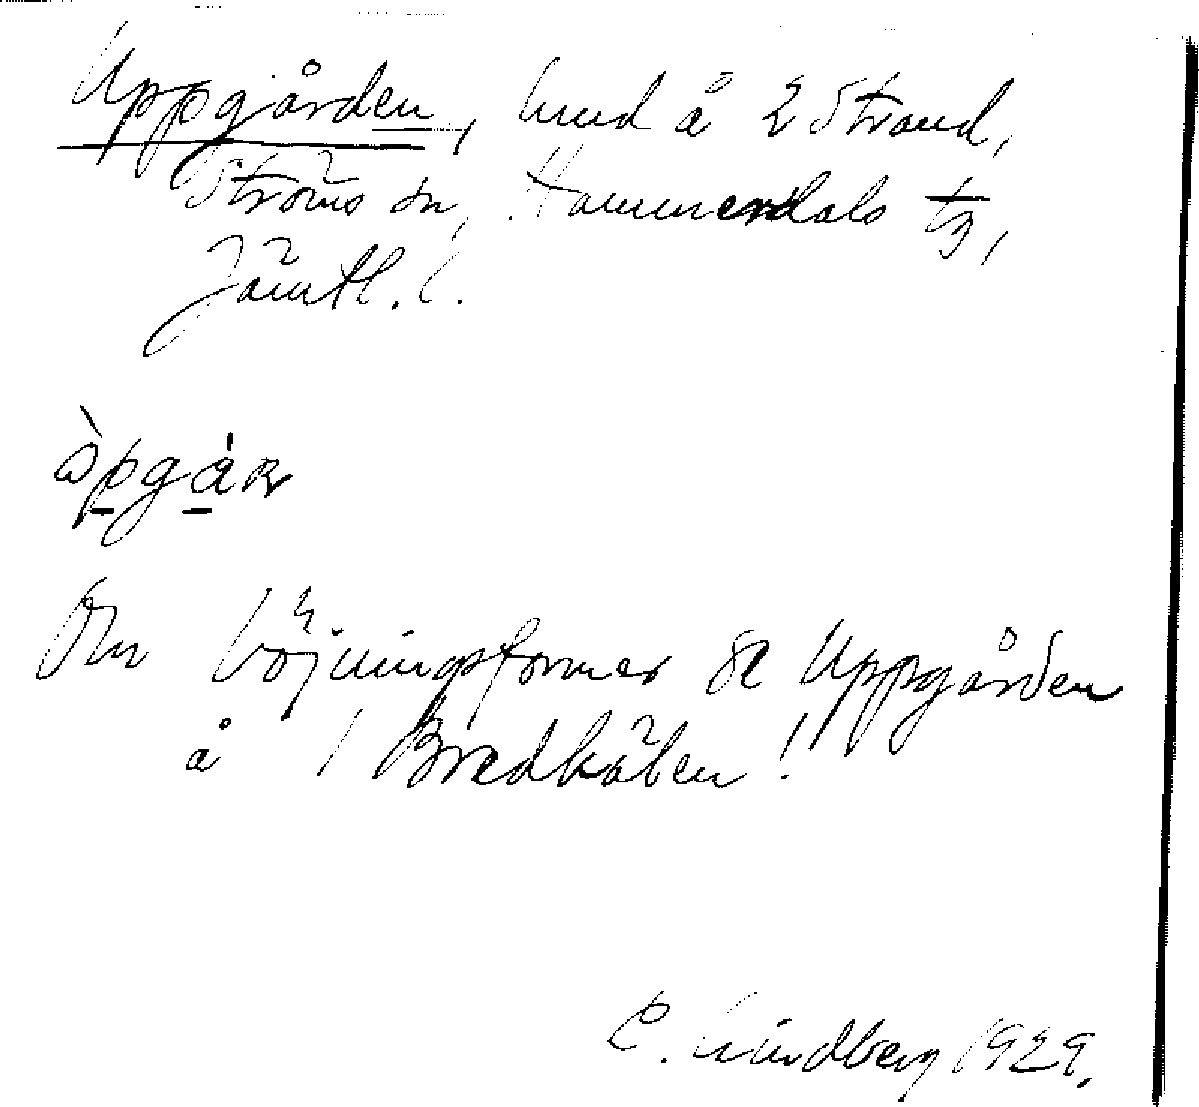 Uppgården, hmd å 2 Strand,
Ströms sn, Hammerdals tg,
Jämtl. l.
òpgàR
Om böjningsformer se Uppgården
å 1 Bredkälen!
E. Lindberg 1929.